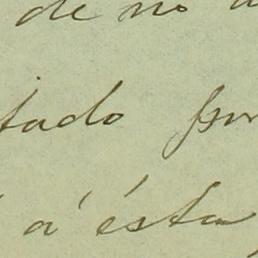 de no
tado por
á ésta